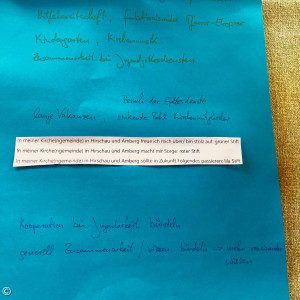 Kindergarten, Kirchenmusik
Zusammenarbeit bei Jugendgottesdiensten
Besuch der Gottesdienste
Lange Vakanzen, sinkende Zahl Kirchenmitglieder
In meiner Kirche(ngemeinde) in Hirschau und Amberg freue ich mich über/ bin stolz auf: grüner Stift
In meiner Kirche(ngemeinde) in Hirschau und Amberg macht mir Sorge: roter Stift
In meiner Kirche(ngemeinde) in Hirschau und Amberg sollte in Zukunft Folgendes passieren: bla Stift
Kooperation bei Jugendarbeit bündeln
generell Zusammenarbeit / Wissen bündeln → mehr voneinander
wissen